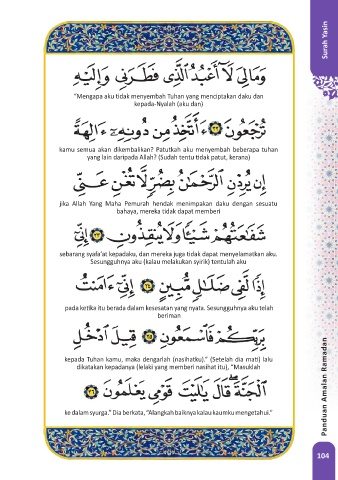 Surah Yasin
وَمَالِىَ لَآ أَعْبُدُ ٱلَّذِى فَطَرَنِى وَإِلَيْهِ
“Mengapa aku tidak menyembah Tuhan yang menciptakan daku dan
kepada-Nyalah (aku dan)
تُرْجَعُونَ ٢٢ ءَأَتَّخِذُ مِن دُونِهِۦٓ ءَالِهَةً
kamu semua akan dikembalikan? Patutkah aku menyembah beberapa tuhan
yang lain daripada Allah? (Sudah tentu tidak patut, kerana)
إِن يُرِدْنِ ٱلرَّحْمَٰنُ بِضُرٍّ لَّا تُغْنِ عَنِّى
jika Allah Yang Maha Pemurah hendak menimpakan daku dengan sesuatu
bahaya, mereka tidak dapat memberi
شَفَٰعَتُهُمْ شَيْـًٔا وَلَا يُنقِذُونِ ٢٣ إِنِّىٓ
sebarang syafa’at kepadaku, dan mereka juga tidak dapat menyelamatkan aku.
Sesungguhnya aku (kalau melakukan syirik) tentulah aku
إِذًا لَّفِى ضَلَٰلٍ مُّبِينٍ ٢٤ إِنِّىٓ ءَامَنتُ
pada ketika itu berada dalam kesesatan yang nyata. Sesungguhnya aku telah
beriman
بِرَبِّكُمْ فَٱسْمَعُونِ ٢٥ قِيلَ ٱدْخُلِ
kepada Tuhan kamu, maka dengarlah (nasihatku).” (Setelah dia mati) lalu
dikatakan kepadanya (lelaki yang memberi nasihat itu), “Masuklah
ٱلْجَنَّةَ ۖ قَالَ يَٰلَيْتَ قَوْمِى يَعْلَمُونَ ٢٦
ke dalam syurga.” Dia berkata, “Alangkah baiknya kalau kaumku mengetahui.”
Panduan Amalan Ramadan
104